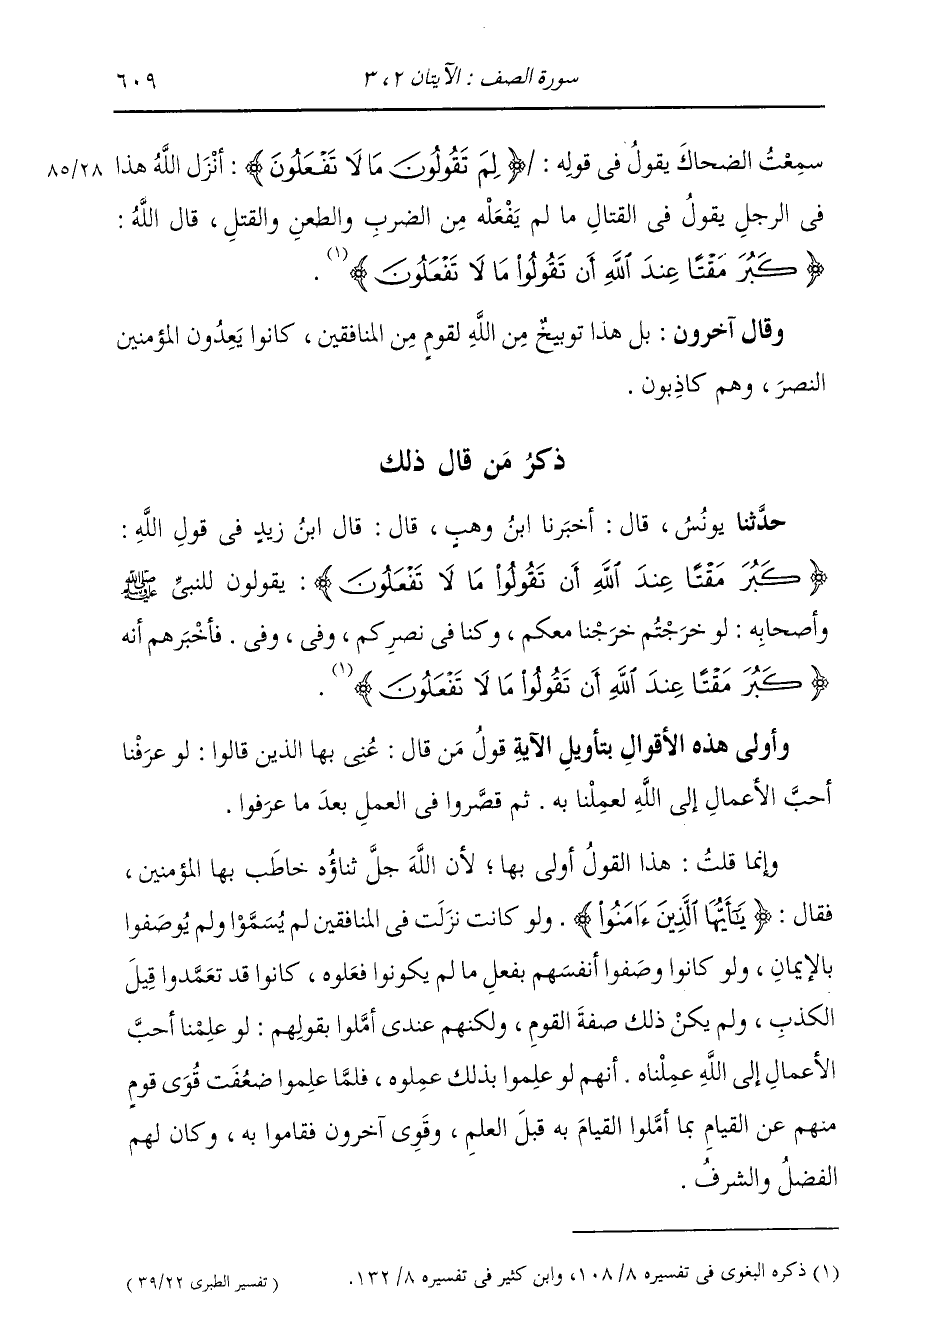 سورة الصف : الآيتان ٢ ، ٣
٦٠٩
سمِعْتُ الضحاكَ يقولُ فى قولِه : /﴿ لِمَ تَقُولُونَ مَا لَا تَفْعَلُونَ ﴾ : أنْزَل اللَّهُ هذا ٨٥/٢٨
فى الرجلِ يقولُ فى القتالِ ما لم يَفْعَلْه مِن الضربِ والطعنِ والقتلِ ، قال اللَّهُ :
﴿ كَبُرَ مَقْتًا عِندَ ٱللَّهِ أَن تَقُولُواْ مَا لَا تَفْعَلُونَ ﴾(١) .
وقال آخرون : بل هذا توبيخٌ مِن اللَّهِ لقومٍ مِن المنافقين ، كانوا يَعِدُون المؤمنين
النصرَ ، وهم كاذِبون .
ذكرُ مَن قال ذلك
حدَّثنا يونُسُ ، قال : أخبَرنا ابنُ وهبٍ ، قال : قال ابنُ زيدٍ فى قولِ اللَّهِ :
﴿ كَبُرَ مَقْتًا عِندَ ٱللَّهِ أَن تَقُولُواْ مَا لَا تَفْعَلُونَ ﴾ : يقولون للنبىِّ ﷺ
وأصحابِه : لو خرَجْتُم خرَجْنا معكم ، وكنا فى نصرِكم ، وفى ، وفى . فأخْبَرهم أنه
﴿ كَبُرَ مَقْتًا عِندَ ٱللَّهِ أَن تَقُولُواْ مَا لَا تَفْعَلُونَ ﴾(١) .
وأولى هذه الأقوالِ بتأويلِ الآيةِ قولُ مَن قال : عُنِى بها الذين قالوا : لو عرَفْنا
أحبَّ الأعمالِ إلى اللَّهِ لعمِلْنا به . ثم قصَّروا فى العملِ بعدَ ما عرَفوا .
وإنما قلتُ : هذا القولُ أولى بها ؛ لأن اللَّهَ جلَّ ثناؤُه خاطَب بها المؤمنين ،
فقال : ﴿ يَٰٓأَيُّهَا ٱلَّذِينَ ءَامَنُواْ ﴾ . ولو كانت نزَلَت فى المنافقين لم يُسَمَّوْا ولم يُوصَفوا
بالإيمانِ ، ولو كانوا وصَفوا أنفسَهم بفعلِ ما لم يكونوا فعَلوه ، كانوا قد تعَمَّدوا قِيلَ
الكذبِ ، ولم يكنْ ذلك صفةَ القومِ ، ولكنهم عندى أمَّلوا بقولِهم : لو علِمْنا أحبَّ
الأعمالِ إلى اللَّهِ عمِلْناه . أنهم لو علِموا بذلك عمِلوه ، فلمَّا علِموا ضعُفَت قُوَى قومٍ
منهم عن القيامِ بما أمَّلوا القيامَ به قبلَ العلمِ ، وقَوِى آخرون فقاموا به ، وكان لهم
الفضلُ والشرفُ .
(١) ذكره البغوى فى تفسيره ٨/ ١٠٨، وابن كثير فى تفسيره ٨/ ١٣٢.
( تفسير الطبرى ٣٩/٢٢ )